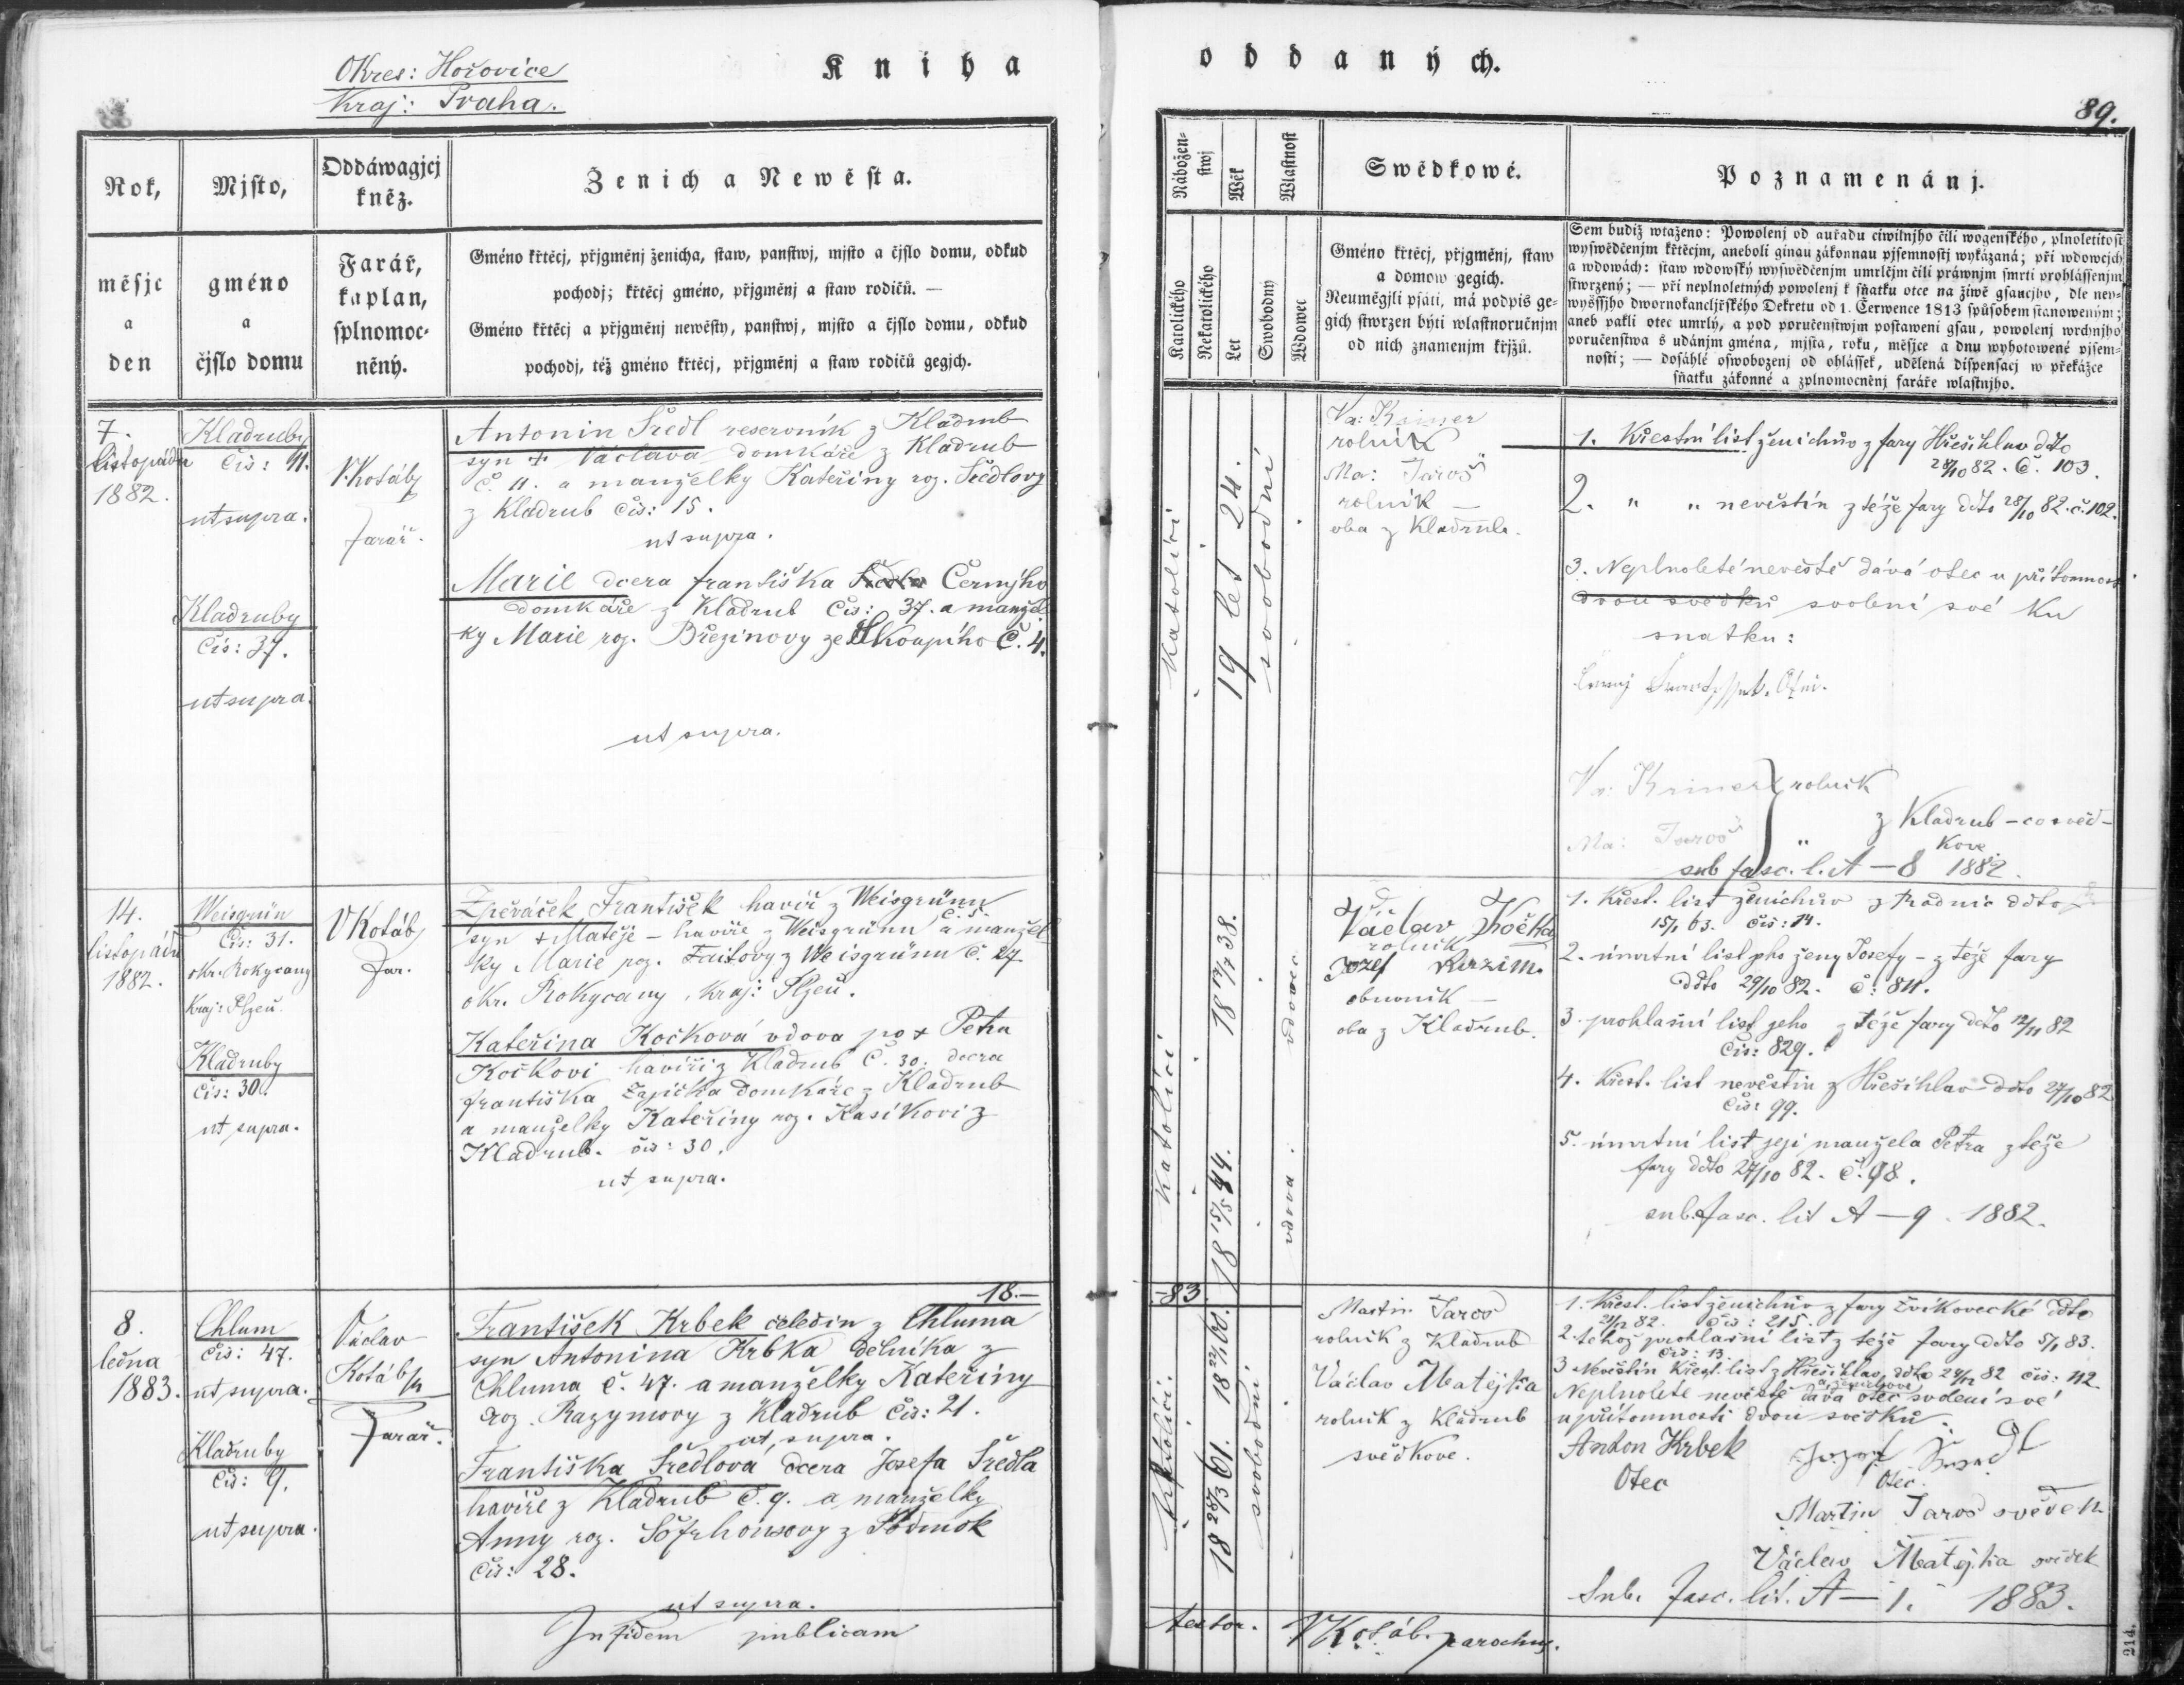 Okres: Hořovice
Kraj: Praha.
Kniha
oddaných.
89.
Rok,
měsjc
a
den
Mjsto,
gméno
a
čjslo domu
Oddáwagjcj
kněz.
Farář,
kaplan,
splnomoc-
něný.
Ženich a Newěsta.
Gméno křtěcj, přjgměnj ženicha, staw, panstwj, mjsto a čjslo domu, odkud
pochodj; křtěcj gméno, přjgměnj a staw rodičů. —
Gméno křtěcj a přjgměnj newěsty, panstwj, mjsto a čjslo domu, odkud
pochodj, též gméno křtěcj, přjgměnj a staw rodičů gegjch.
Nábožen-
stwj
Katolického
Nekatolického
Wěk
Let
Wlastnost
Swobodný
Wdowec
Swědkowé.
Gméno křtěcj, přjgměnj, staw
a domow gegich.
Neuměgjli psáti, má podpis ge-
gich stwrzen býti wlastnoručnjm
od nich znamenjm křjžů.
Poznamenánj.
Sem budiž wtaženo: Powolenj od auřadu ciwilnjho čili wogenského, plnoletitost
wyswědčenjm křtěcjm, aneboli ginau zákonnau pjsemnostj wykázaná; při wdowcjch
a wdowách: staw wdowský wyswědčenjm umrlčjm čili práwnjm smrti prohlássenjm
stwrzený; — při neplnoletných powolenj k sňatku otce na žiwě gsaucjho, dle ney-
wyššjho dwornokancljřského Dekretu od 1. Čerwence 1813 spůsobem stanoweným;
aneb pakli otec umrlý, a pod poručenstwjm postaweni gsau, powolenj wrchnjho
poručenstwa s udánjm gména, mjsta, roku, měsjce a dnu wyhotowené pjsem-
nosti; — dosáhlé oswobozenj od ohlášek, udělená dispensacj w překážce
sňatku zákonné a zplnomocněnj faráře wlastnjho.
7.
listopadu
1882.
Kladruby
čís: 11.
ut supra.
Kladruby
Čís: 37.
ut supra.
V. Kotáb
farář.
Antonin Šredl reservník z Kladrub
syn + Václava domkáře z Kladrub
č. 11. a manželky Kateřiny roz. Šredlovy
z Kladrub čís: 15.
ut supra.
Marie dcera františka Černýho
domkáře z Kladrub Čís: 37. a manžel
ky Marie roz. Březinovy ze Skoupího č. 4.
ut supra.
katolíci
19 let 24.
svobodní
Va: Kriner
rolník
Ma: Jaroš
rolník —
oba z Kladrub.
1. Křestní list ženichův z fary Hřešihlav ddto
28/10 82. č. 103.
2. " " nevěstin z téže fary ddto 28/10 82. č. 102.
3. Neplnoleté nevěstě dává otec u přítomnosti
dvou svědků svolení své ku
snatku:
Va: Kriner rolník
z Kladrub – co svěd-
Ma: Jaroš " kove.
sub fasc. l. A – 8 1882.
14.
listopadu
1882.
Weisgrün
Čís: 31.
okr. Rokycany
Kraj: Plzeň.
Kladruby
čís: 30.
ut supra.
V Kotáb
far.
Zpěváček František havíř z Weisgrünu
č. 5.
syn + Matěje – havíře z Weisgrünu a manžel
ky Marie roz. Faitovy z Weisgrünu č. 27.
okr. Rokycany, Kraj: Plzeň.
Kateřina Kočková vdova po + Petra
Kočkovi havíři z Kladrub č. 30. dcera
františka Zajíčka domkáře z Kladrub
a manželky Kateřiny roz. Kasíkovi z
Kladrub. čís: 30.
ut supra.
katolíci
38.
18 15/5 44.
vdovec
vdova.
Václav Kočka
rolník
Jozef
obuvník —
oba z Kladrub.
1. Křest. list ženichův z Radnic ddto
15/1 63. čís: 14.
2. úmrtní list pho ženy Josefy – z téže fary
ddto 29/10 82. č: 811.
3. prohlašní list jeho z téže fary ddto 12/11 82
Čís: 829.
4. Křest. list nevěstin z Hřešihlav ddto 27/10 82
čís: 99.
5. úmrtní list její manžela Petra z téže
fary ddto 27/10 82. č. 98.
sub. fasc. lit A – 9. 1882.
18.—
-83.
8.
ledna
1883.
Chlum
čís: 47.
ut supra.
Kladruby
čís: 9.
ut supra.
Václav
Kotáb
Farář.
František Krbek čeledin z Chluma
syn Antonina Krbka dělníka z
Chluma č. 47. a manželky Kateřiny
roz. Razymovy z Kladrub čís: 21.
ut supra.
Františka Šredlová dcera Josefa Šredla
havíře z Kladrub č. 9. a manželky
Anny roz. z Podmok
čís: 28.
ut supra.
katolíci.
60.
18 28/3 61.
svobodní
Martin Jaroš
rolník z Kladrub
Václav Matějka
rolník z Kladrub
svědkove.
1. Křest. list ženichův z fary Zvíkovecké ddto
82. čís: 215.
2. téhož prohlašní list z téže fary ddto 5/1 83.
čís: 13.
3 Nevěstin křest. list z Hřešihlav ddto 82 čís: 112.
a ženichove
Neplnoleté nevěstě dává otec svolení své
u přítomnosti dvou svědků.
Anton Krbek
Otec
Otec.
Martin Jaroš svědek
Václav Matejka svědek
Sub. fasc. lit. A – 1. 1883.
In fidem publicam
testor.
V Kotáb. parochus.
214.